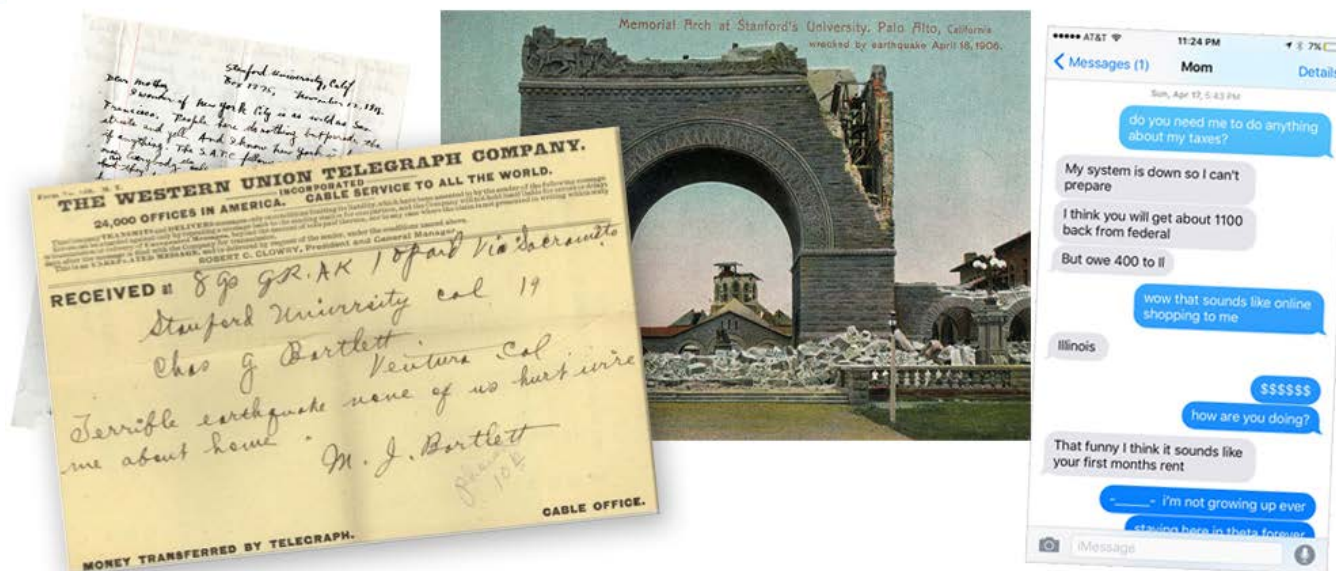 Stanford University, Calif
Box 1275, November 12, 1918.
Dear Mother
I wonder if New York City is as wild as San
Francisco. People here do nothing but parade the
streets and yell. And I know New York is
if anything. The S.A.T.C. fellows
THE WESTERN UNION TELEGRAPH COMPANY.
INCORPORATED
24,000 OFFICES IN AMERICA. CABLE SERVICE TO ALL THE WORLD.
ROBERT C. CLOWRY, President and General Manager.
RECEIVED at 8 GR. AK 10 paid Via Sacramento
Stanford University Cal 19
Chas G Bartlett.
Ventura Cal
Terrible earthquake none of us hurt wire
me about home
M. J. Bartlett
CABLE OFFICE.
MONEY TRANSFERRED BY TELEGRAPH.
Memorial Arch at Stanford's University, Palo Alto, California
wrecked by earthquake April 18, 1906.
AT&T 11:24 PM 7%
Messages (1) Mom Details
Sun, Apr 17, 5:43 PM
do you need me to do anything
about my taxes?
My system is down so I can't
prepare
I think you will get about 1100
back from federal
But owe 400 to Il
wow that sounds like online
shopping to me
Illinois
$$$$$$
how are you doing?
That funny I think it sounds like
your first months rent
-_____- i'm not growing up ever
staying here in theta forever
iMessage